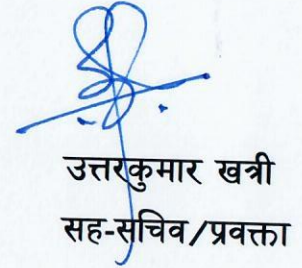 उत्तरकुमार खत्री
सह-सचिव/प्रवक्ता